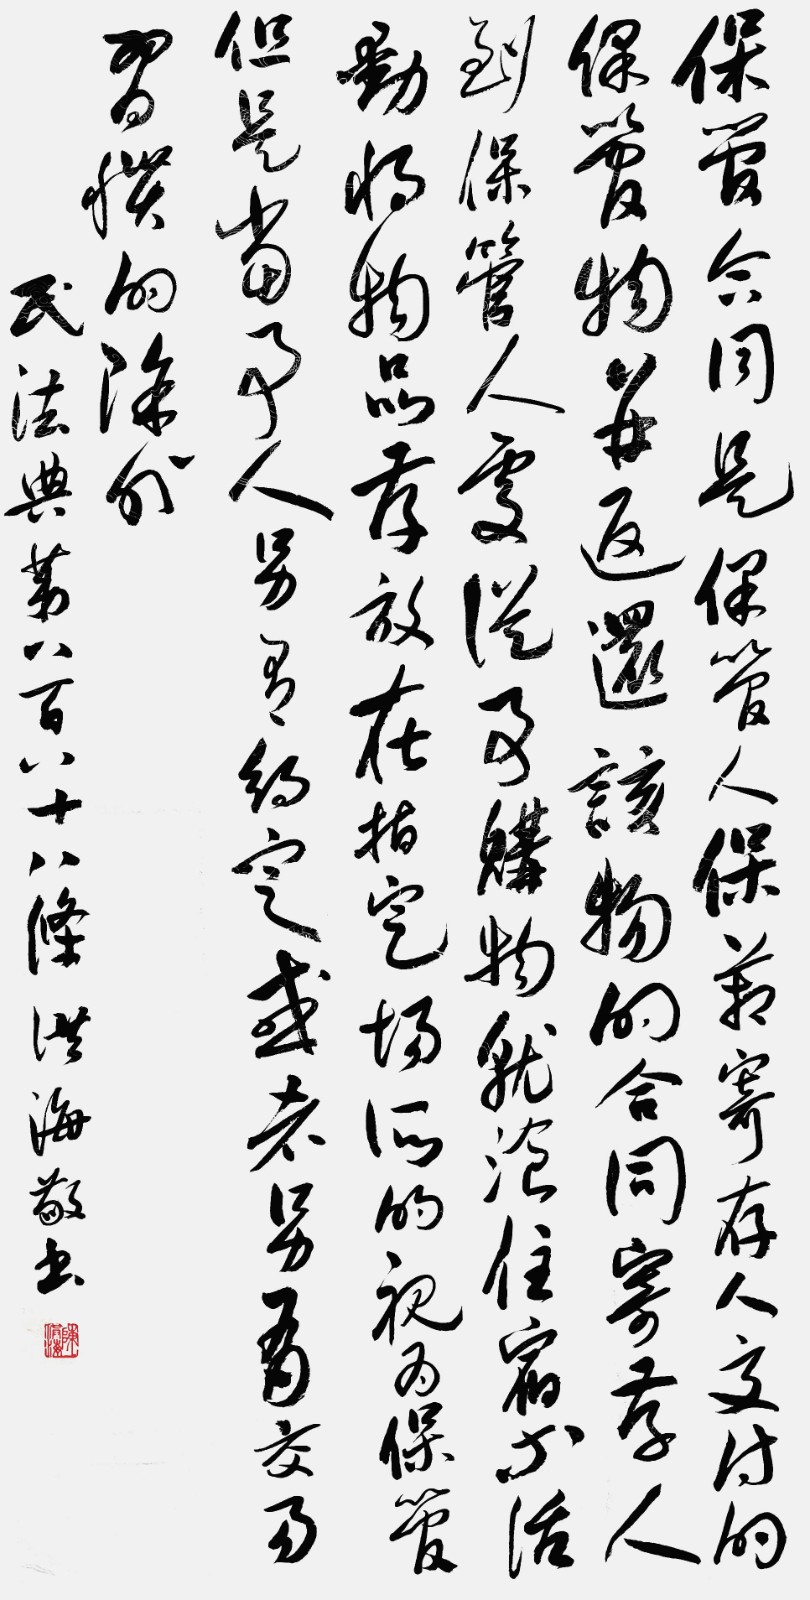 保管合同是保管人保管寄存人交付的
保管物并返還該物的合同寄存人
到保管人處從事購物就湌住宿等活
動將物品存放在指定場所的視為保管
但是當事人另有約定或者另有交易
習慣的除外
民法典第八百八十八條 洪海敬書